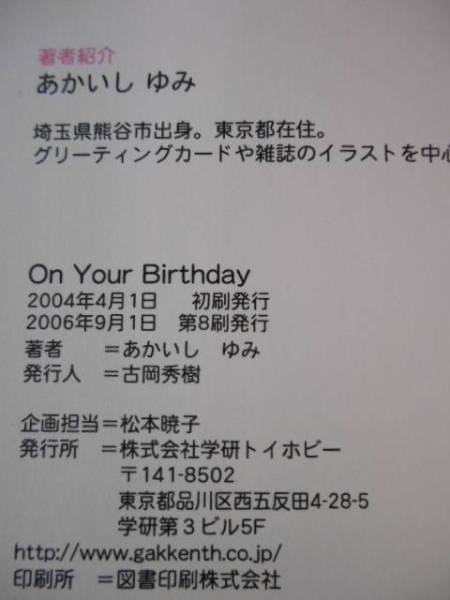 著者紹介
あかいし ゆみ
埼玉県熊谷市出身。東京都在住。
グリーティングカードや雑誌のイラストを中心
On Your Birthday
2004年4月1日　初刷発行
2006年9月1日　第8刷発行
著者　＝あかいし　ゆみ
発行人　＝古岡秀樹
企画担当＝松本暁子
発行所　＝株式会社学研トイホビー
〒141-8502
東京都品川区西五反田4-28-5
学研第３ビル5F
http://www.gakkenth.co.jp/
印刷所　＝図書印刷株式会社